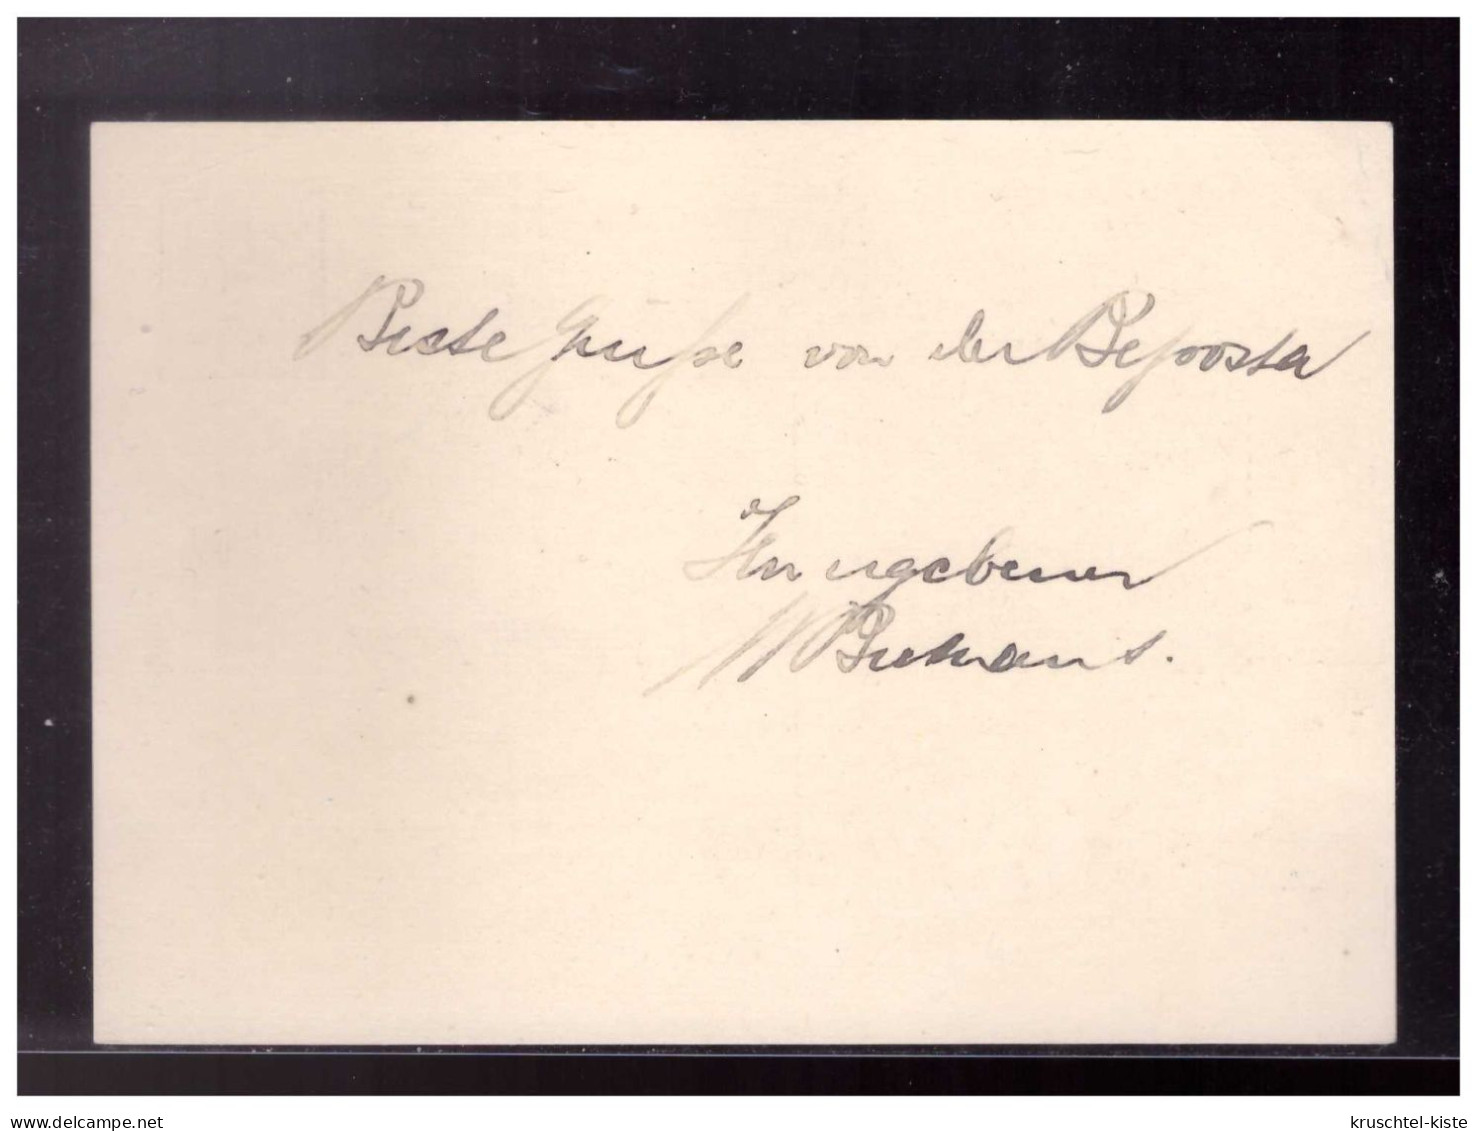 Beste Grüße von der Beposta
Ihr ergebener
delcampe.net
kruschtel-kiste